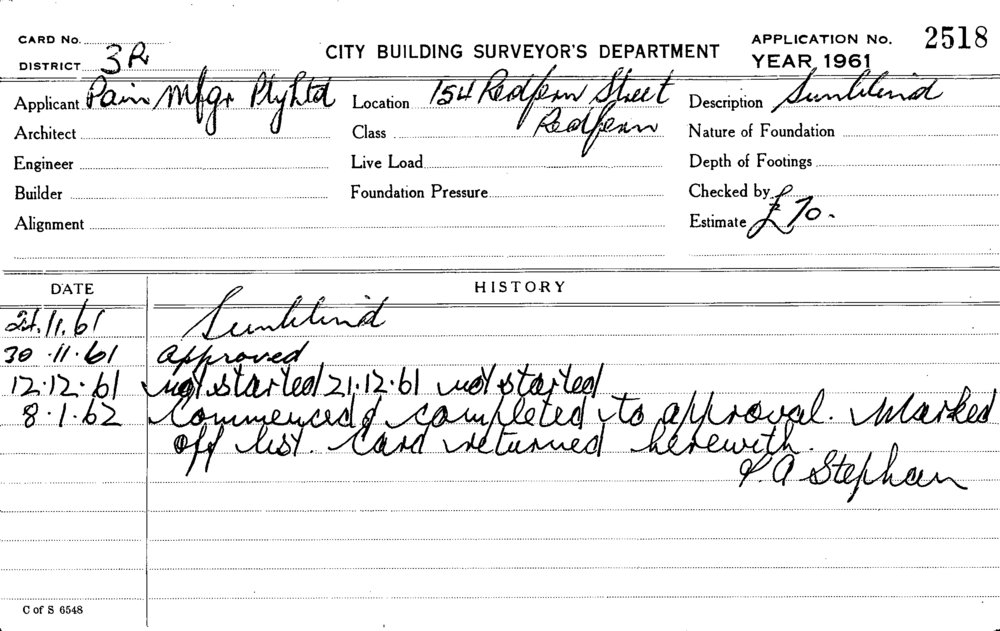 CARD No.
DISTRICT 3R
CITY BUILDING SURVEYOR'S DEPARTMENT
APPLICATION No. 2518
YEAR 1961
Applicant Pain Mfgr Pty Ltd
Location 154 Redfern Street
Redfern
Description Sunblind
Architect
Class
Nature of Foundation
Engineer
Live Load
Depth of Footings
Builder
Foundation Pressure
Checked by
Alignment
Estimate £70.
DATE HISTORY
21.11.61 Sunblind
30.11.61 approved
12.12.61 not started 21.12.61 not started
8.1.62 Commenced & completed to approval. Marked
off list. Card returned herewith.
Stephen
C of S 6548